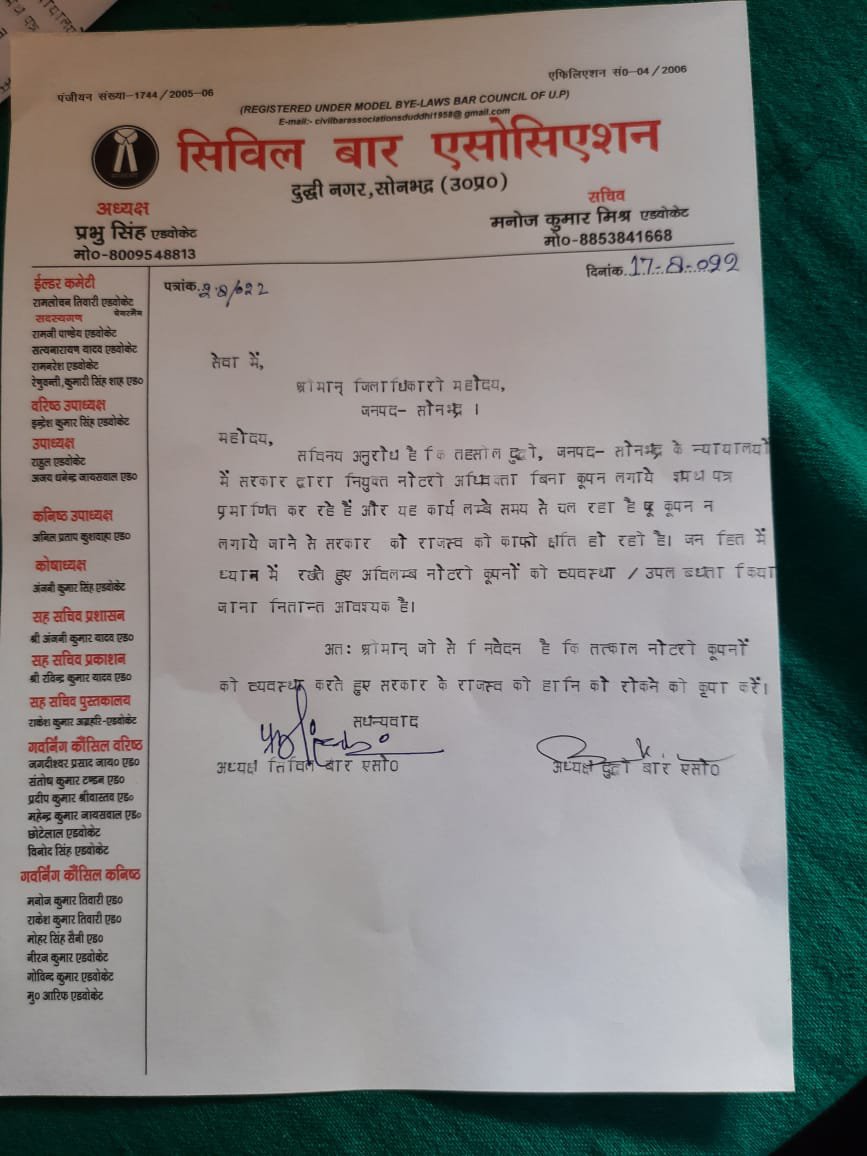 पंजीयन संख्या-1744/2005-06
एफिलिएशन सं0-04/2006
(REGISTERED UNDER MODEL BYE-LAWS BAR COUNCIL OF U.P)
E-mail:- civilbarassociationsduddhi1958@gmail.com
सिविल बार एसोसिएशन
दुद्धी नगर,सोनभद्र (उ०प्र०)
अध्यक्ष
प्रभु सिंह एडवोकेट
मो०-8009548813
सचिव
मनोज कुमार मिश्र एडवोकेट
मो०-8853841668
पत्रांक.28/022
दिनांक.17-8-022
ईल्डर कमेटी
रामलोचन तिवारी एडवोकेट
चेयरमैन
सदस्यगण
रामजी पाण्डेय एडवोकेट
सत्यनारायण यादव एडवोकेट
रामनरेश एडवोकेट
रेणुवन्ती,कुमारी सिंह शाह एड०
वरिष्ठ उपाध्यक्ष
इन्द्रेश कुमार सिंह एडवोकेट
उपाध्यक्ष
राहुल एडवोकेट
अजय धनेन्द्र जायसवाल एड०
कनिष्ठ उपाध्यक्ष
अनिल प्रताप कुशवाहा एड०
कोषाध्यक्ष
अंजनी कुमार सिंह एडवोकेट
सह सचिव प्रशासन
श्री अंजनी कुमार यादव एड०
सह सचिव प्रकाशन
श्री रविन्द्र कुमार यादव एड०
सह सचिव पुस्तकालय
राकेश कुमार अग्रहरि-एडवोकेट
गवर्निंग कौंसिल वरिष्ठ
जगदीश्वर प्रसाद जाय० एड०
संतोष कुमार टण्डन एड०
प्रदीप कुमार श्रीवास्तव एड०
महेन्द्र कुमार जायसवाल एड०
छोटेलाल एडवोकेट
विनोद सिंह एडवोकेट
गवर्निंग कौंसिल कनिष्ठ
मनोज कुमार तिवारी एड०
राकेश कुमार तिवारी एड०
मोहर सिंह सैनी एड०
नीरज कुमार एडवोकेट
गोविन्द कुमार एडवोकेट
मु० आरिफ एडवोकेट
सेवा में,
श्रीमान् जिलाधिकारी महोदय,
जनपद- सोनभद्र ।
महोदय,
सविनय अनुरोध है कि तहसील दुद्धी, जनपद- सोनभद्र के न्यायालयों
में सरकार द्वारा नियुक्त नोटरी अधिवक्ता बिना कूपन लगाये शपथ पत्र
प्रमाणित कर रहे हैं और यह कार्य लम्बे समय से चल रहा है कूपन न
लगाये जाने से सरकार को राजस्व की काफी क्षति हो रही है। जन हित में
ध्यान में रखते हुए अविलम्ब नोटरी कूपनों की व्यवस्था / उपलब्धता किया
जाना नितान्त आवश्यक है।
अतः श्रीमान् जी से निवेदन है कि तत्काल नोटरी कूपनों
की व्यवस्था करते हुए सरकार के राजस्व की हानि को रोकने की कृपा करें।
सधन्यवाद
अध्यक्ष सिविल बार एसो०
अध्यक्ष दुद्धी बार एसो०